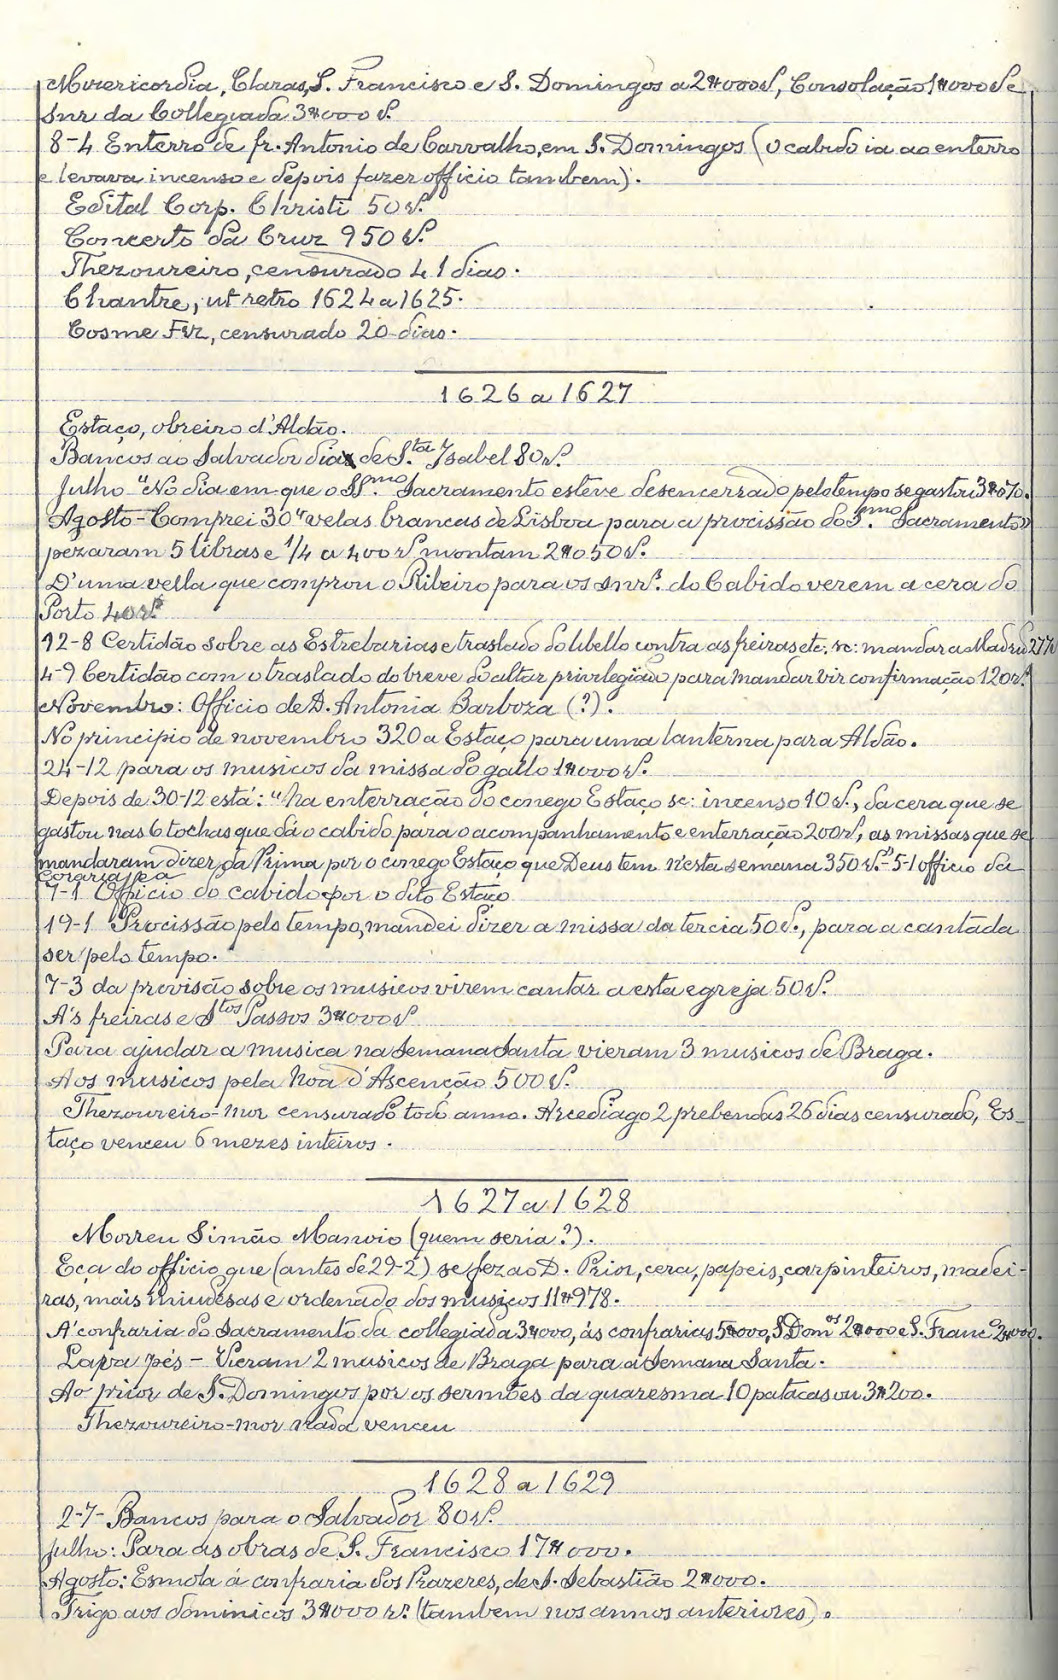 Misericordia, Claras, S. Francisco e S. Domingos a 2$000 rs., Consolação 1$000 de
Snr da Collegiada 3$000 rs.
8-4 Enterro de fr. Antonio de Carvalho, em S. Domingos (o cabido ia ao enterro
e levava incenso e depois fazer officio tambem).
Edital Corp. Christi 50 rs.
Concerto da Cruz 950 rs.
Thezoureiro, censurado 41 dias.
Chantre, ut retro 1624 a 1625.
Cosme Frz, censurado 20 dias.
1626 a 1627
Estaço, obreiro d'Aldão.
Bancos ao Salvador dia de S.ta Ysabel 80 rs.
Julho "No dia em que o SS.mo Sacramento esteve desencerrado pelo tempo se gastou 3$070.
Agosto - Comprei 30 "velas brancas de Lisboa para a procissão do S.mo Sacramento"
pezaram 5 libras e 1/4 a 400 rs montam 2$050 rs.
D'uma vella que comprou o Ribeiro para os snrs. do Cabido verem a cera do
Porto 40 rs.
12-8 Certidão sobre as Estrebarias e traslado do libello contra as freiras etc. sc: mandar a Madrid 277
4-9 Certidão com o traslado do breve do altar privilegiado para mandar vir confirmação 120 rs.
Novembro: Officio de D. Antonia Barboza (?).
No principio de novembro 320 a Estaço para uma lanterna para Aldão.
24-12 para os musicos da missa do gallo 1$000 rs.
Depois de 30-12 está: "na enterração do conego Estaço sc: incenso 10 rs., da cera que se
gastou nas 6 tochas que dá o cabido para o acompanhamento e enterração 200 rs, as missas que se
mandaram dizer da Prima por o conego Estaço que Deus tem n'esta semana 350 rs." - 5-1 officio da
coraria pea
7-1 Officio do cabido por o dito Estaço
19-1 Procissão pelo tempo, mandei dizer a missa da tercia 50 rs., para a cantada
ser pelo tempo.
7-3 da provisão sobre os musicos virem cantar a esta egreja 50 rs.
A's freiras e S.tos Passos 3$000 rs
Para ajudar a musica na Semana Santa vieram 3 musicos de Braga.
Aos musicos pela Noa d'Ascenção 500 rs.
Thezoureiro-mor censurado todo anno. Arcediago 2 prebendas 26 dias censurado, Es-
taço venceu 6 mezes inteiros.
1627 a 1628
Morreu Simão Manoio (quem seria?).
Eça do officio que (antes de 29-2) se fez ao D. Prior, cera, papeis, carpinteiros, madei-
ras, mais miudesas e ordenado dos musicos 11$978.
A' confraria do Sacramento da collegiada 3$000, ás confrarias 5$000, S Dom.os 2$000 e S. Franc.o 2$000.
Lapa pés - Vieram 2 musicos de Braga para a Semana Santa.
Ao prior de S. Domingos por os sermões da quaresma 10 patacas ou 3$200.
Thezoureiro-mor nada venceu
1628 a 1629
2-7- Bancos para o Salvador 80 rs.
Julho: Para as obras de S. Francisco 17$000.
Agosto: Esmola á confraria dos Prazeres, de S. Sebastião 2$000.
Trigo aos dominicos 3$000 rs. (tambem nos annos anteriores).